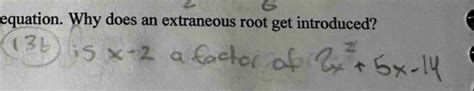 equation. Why does an extraneous root get introduced?
13b is x-2 a factor of 2x² + 5x-14